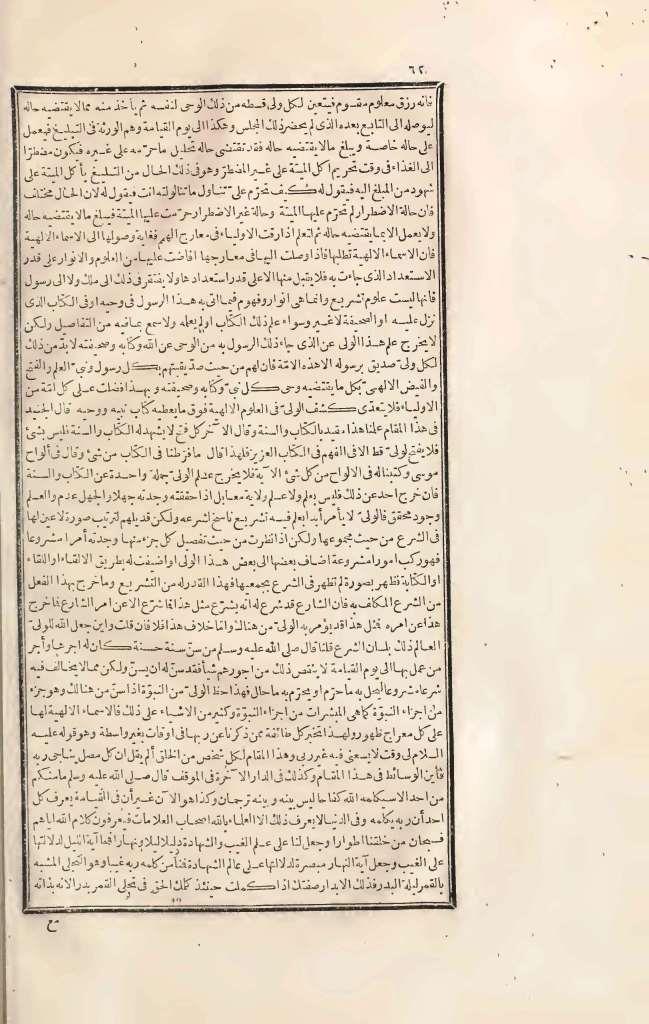 ٦٢
فانه رزق معلوم مقسوم فيتعين لكل ولى قسطه من ذلك الوحى لنفسه ثم يأخذ منه ممالا يقتضيه حاله
ليوصله الى التابع بعده الذى لم يحضر ذلك المجلس وهكذا الى يوم القيامة وهم الورثة فى التبليغ فيعمل
على حاله خاصة ويبلغ مالا يقتضيه حاله فقد تقتضى حاله تحليل ماحرّمه على غيره فيكون مضطرّا
الى الغذاء فى وقت تحريم اكل الميتة على غير المضطرّ وهو فى ذلك الحال من التبليغ يأكل الميتة على
شهود من المبلغ اليه فيقول له كيف تحرّم علىّ تناول ماتناولته انت فيقول له لان الحال مختلف
فان حالة الاضطرار لم تحرّم عليها الميتة وحالة غير الاضطرار حرّمت عليها الميتة فيبلغ مالا يقتضيه حاله
ولا يعمل الا بما يقتضيه حاله ثم لتعلم اذا رقت الاولياء فى معارج الهمم فغاية وصولها الى الاسماء الالهية
فان الاسماء الالهية تطلبها فاذا وصلت اليها فى معارجها افاضت عليها من العلوم والانوار على قدر
الاستعداد الذى جاءت به فلا يقبل منها الا على قدر استعدادها ولا يفتقر فى ذلك الى ملك ولا الى رسول
فانها ليست علوم تشريع وانما هى انوار وفهوم فيما اتى به هذا الرسول فى وحيه او فى الكتاب الذى
نزل عليه او الصحيفة لا غير وسواء علم ذلك الكتاب او لم يعلمه ولا سمع بما فيه من التفاصيل ولكن
لا يخرج علم هذا الولى عن الذى جاء ذلك الرسول به من الوحى عن الله وكتابه وصحيفته لا بدّ من ذلك
لكل ولىّ صديق برسوله الا هذه الامّة فان لهم من حيث صدّيقيتهم بكل رسول ونبىّ العلم والفتح
والفيض الالهىّ بكل ما يقتضيه وحى كل نبىّ وكتابه وصحيفته وبهذا فضلت على كل امّة من
الاولياء فلا يتعدّى كشف الولىّ فى العلوم الالهية فوق ما يعطيه كتاب نبيه ووحيه قال الجنيد
فى هذا المقام علمنا هذا مقيد بالكتاب والسنة وقال الآخر كل فتح لا يشهد له الكتاب والسنة فليس بشئ
فلا يفتح لولىّ قط الا فى الفهم فى الكتاب العزيز فلهذا قال مافرّطنا فى الكتاب من شئ وقال فى ألواح
موسى وكتبنا له فى الالواح من كل شئ الآية فلا يخرج علم الولىّ جملة واحدة عن الكتاب والسنة
فان خرج احد عن ذلك فليس بعلم ولا علم ولاية معا بل اذا حققته وجدته جهلا والجهل عدم والعلم
وجود محقق فالولىّ لا يأمر أبدا بعلم فيه تشريع ناسخ لشرعه ولكن قد يلهم لترتيب صورة لا عين لها
فى الشرع من حيث مجموعها ولكن اذا نظرت من حيث تفصيل كل جزء منها وجدته أمرا مشروعا
فهو ركب امورا مشروعة اضاف بعضها الى بعض هذا الولى او اضيفت له بطريق الالقاء او اللقاء
او الكتابة فظهر بصورة لم تظهر فى الشرع بجمعيتها فهذا القدر له من التشريع وما خرج بهذا الفعل
من الشرع المكلف به فان الشارع قد شرع له انه يشرّع مثل هذا فما شرّع الا عن امر الشارع فما خرج
هذا عن امره فمثل هذا قد يؤمر به الولىّ من هنالك واما خلاف هذا فلا فان قلت واين جعل الله للولىّ
العالم ذلك بلسان الشرع قلنا قال صلى الله عليه وسلم من سنّ سنة حسنة كان له اجرها واجر
من عمل بها الى يوم القيامة لا ينقص ذلك من اجورهم شيأ فقد سنّ له ان يسنّ ولكن ممالا يخالف فيه
شرعا مشروعا ليحل به ما حرّم او يحرّم به ما حلل فهذا حظ الولىّ من النبوّة اذا سنّ من هنالك وهو جزء
من اجزاء النبوّة كما هى المبشرات من اجزاء النبوّة وكثير من الاشياء على ذلك فالاسماء الالهية لها
على كل معراج ظهور ولهذا المخبر كل طائفة ممن ذكرنا عن ربها فى اوقات بغير واسطة وهو قوله عليه
السلام لى وقت لا يسعنى فيه غير ربى وهذا المقام لكل شخص من الخلق ألم يقل ان كل مصل يناجى ربه
فأين الوسائط فى هذا المقام وكذلك فى الدار الآخرة فى الموقف قال صلى الله عليه وسلم مامنكم
من احد الا سيكلمه الله كفاحا ليس بينه وبينه ترجمان وكذا هو الآن غير أن فى القيامة يعرف كل
احد أن ربه يكلمه وفى الدنيا لا يعرف ذلك الا العلماء بالله اصحاب العلامات فيعرفون كلام الله اياهم
فسبحان من خلقنا اطوارا وجعل لنا على علم الغيب والشهادة دليلا ليلا ونهارا فمحا آية الليل لدلالتها
على الغيب وجعل آية النهار مبصرة لدلالتها على عالم الشهادة فمنا من كلمه ربه غيبا وهو التجلى المشبه
بالقمر ليلة البدر فذلك الابدار صفتك اذا كملت حينئذ كلك الحق فى تجلى القمر بدرا لانه بذاته
مع